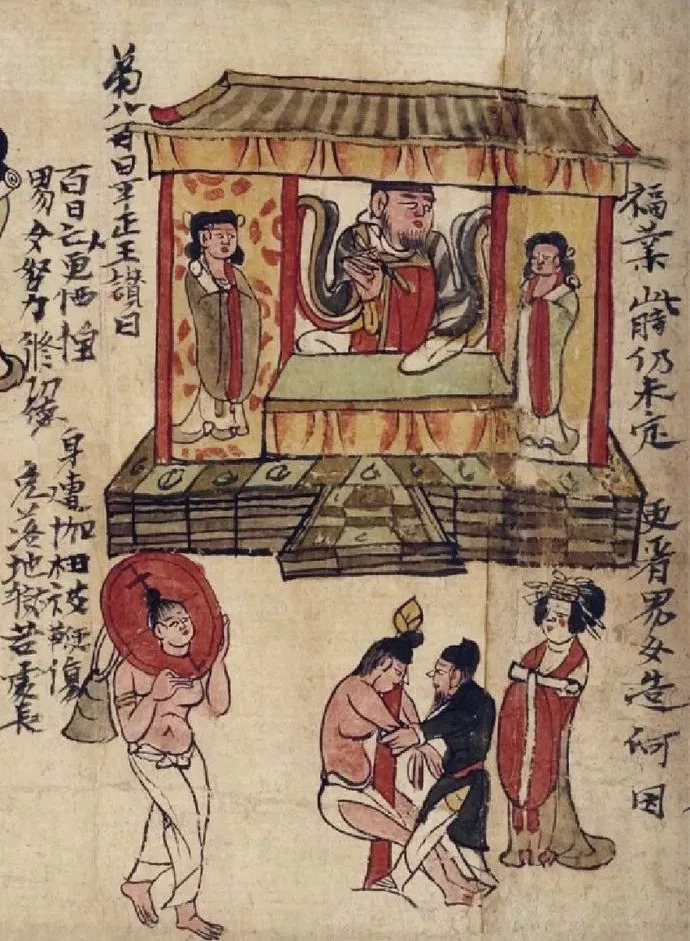 福業此時仍未定 更看男女造何因
第八百日平正王讃曰
百日亡人更恓惶 身遭枷杻被鞭傷
男女努力修功德 免落地獄苦處長